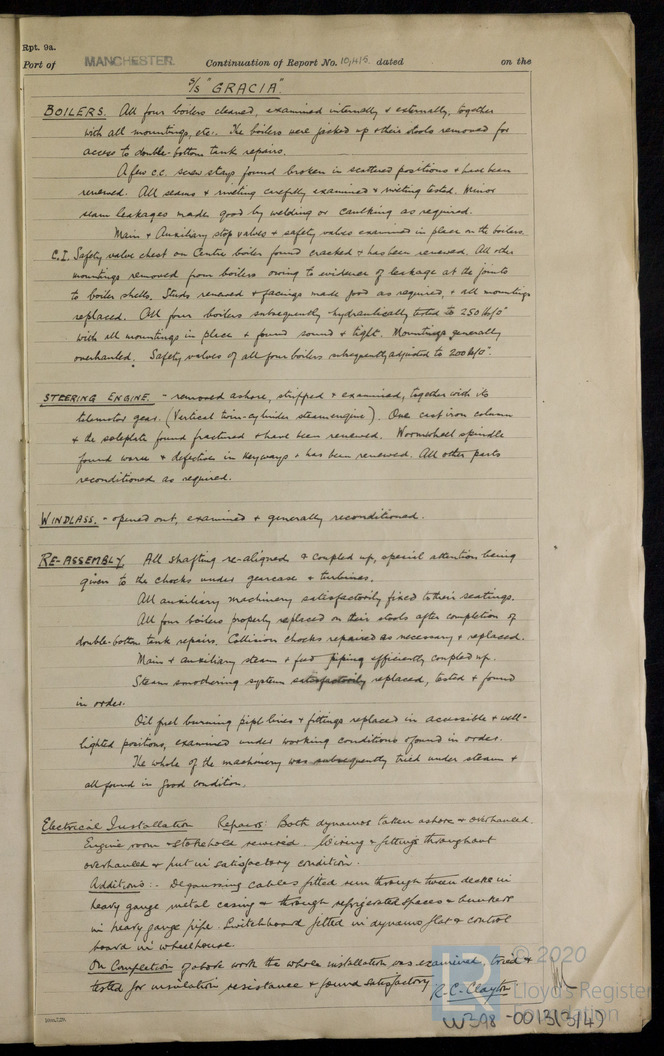 Rpt. 9a.
Port of MANCHESTER. Continuation of Report No. 10,415 dated on the
S/S "GRACIA".
BOILERS. All four boilers cleaned, examined internally & externally, together
with all mountings, etc. The boilers were jacked up & their stools removed for
access to double-bottom tank repairs.
A few c.c. screw stays found broken in scattered positions & had been
renewed. All seams & riveting carefully examined & riveting tested. Minor
seam leakages made good by welding or caulking as required.
Main & Auxiliary stop valves & safety valves examined in place on the boilers.
C.I. Safety valve chest on Centre boiler found cracked & has been renewed. All other
mountings removed from boilers owing to evidence of leakage at the joints
to boiler shells. Studs renewed & facings made good as required, & all mountings
replaced. All four boilers subsequently hydraulically tested to 250 lb/□"
with all mountings in place & found sound & tight. Mountings generally
overhauled. Safety valves of all four boilers subsequently adjusted to 200 lb/□".
STEERING ENGINE. - removed ashore, stripped & examined, together with its
telemotor gear. (Vertical twin-cylinder steam engine). One cast iron column
& the soleplate found fractured & have been renewed. Wormwheel spindle
found worn & defective in keyways & has been renewed. All other parts
reconditioned as required.
WINDLASS. - opened out, examined & generally reconditioned.
RE-ASSEMBLY. All shafting re-aligned & coupled up, special attention being
given to the chocks under gearcase & turbines.
All auxiliary machinery satisfactorily fixed to their seatings.
All four boilers properly replaced on their stools after completion of
double-bottom tank repairs. Collision chocks repaired as necessary & replaced.
Main & auxiliary steam & feed piping efficiently coupled up.
Steam smothering system satisfactorily replaced, tested & found
in order.
Oil fuel burning pipe lines & fittings replaced in accessible & well-
lighted positions, examined under working conditions & found in order.
The whole of the machinery was subsequently tried under steam &
all found in good condition.
Electrical Installation Repairs: Both dynamos taken ashore & overhauled.
Engine room & stokehold rewired. Wiring & fittings throughout
overhauled & put in satisfactory condition.
Additions:- Degaussing cables fitted run through tween decks in
heavy gauge metal casing & through refrigerated spaces & bunkers
in heavy gauge pipe. Switchboard fitted in dynamo flat & control
board in wheelhouse.
On Completion of above work the whole installation was examined, tried &
tested for insulation resistance & found satisfactory.
R. C. Clayton
© 2020
Lloyd's Register
Foundation
W398-0013(3/4)